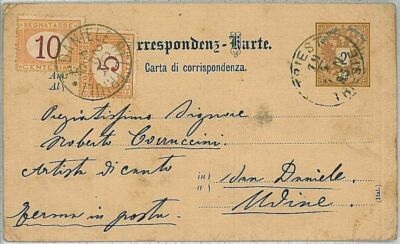 SEGNATASSE
10
CENTESIMI
5
DANIELE
rrespondenz-Karte.
Carta di corrispondenza.
2
TRIEST
An
A
Pregiatissimo Signore
Roberto Corruccini
Artista di canto
in
a
San Daniele
Udine
Ferma in posta
(Ital.)